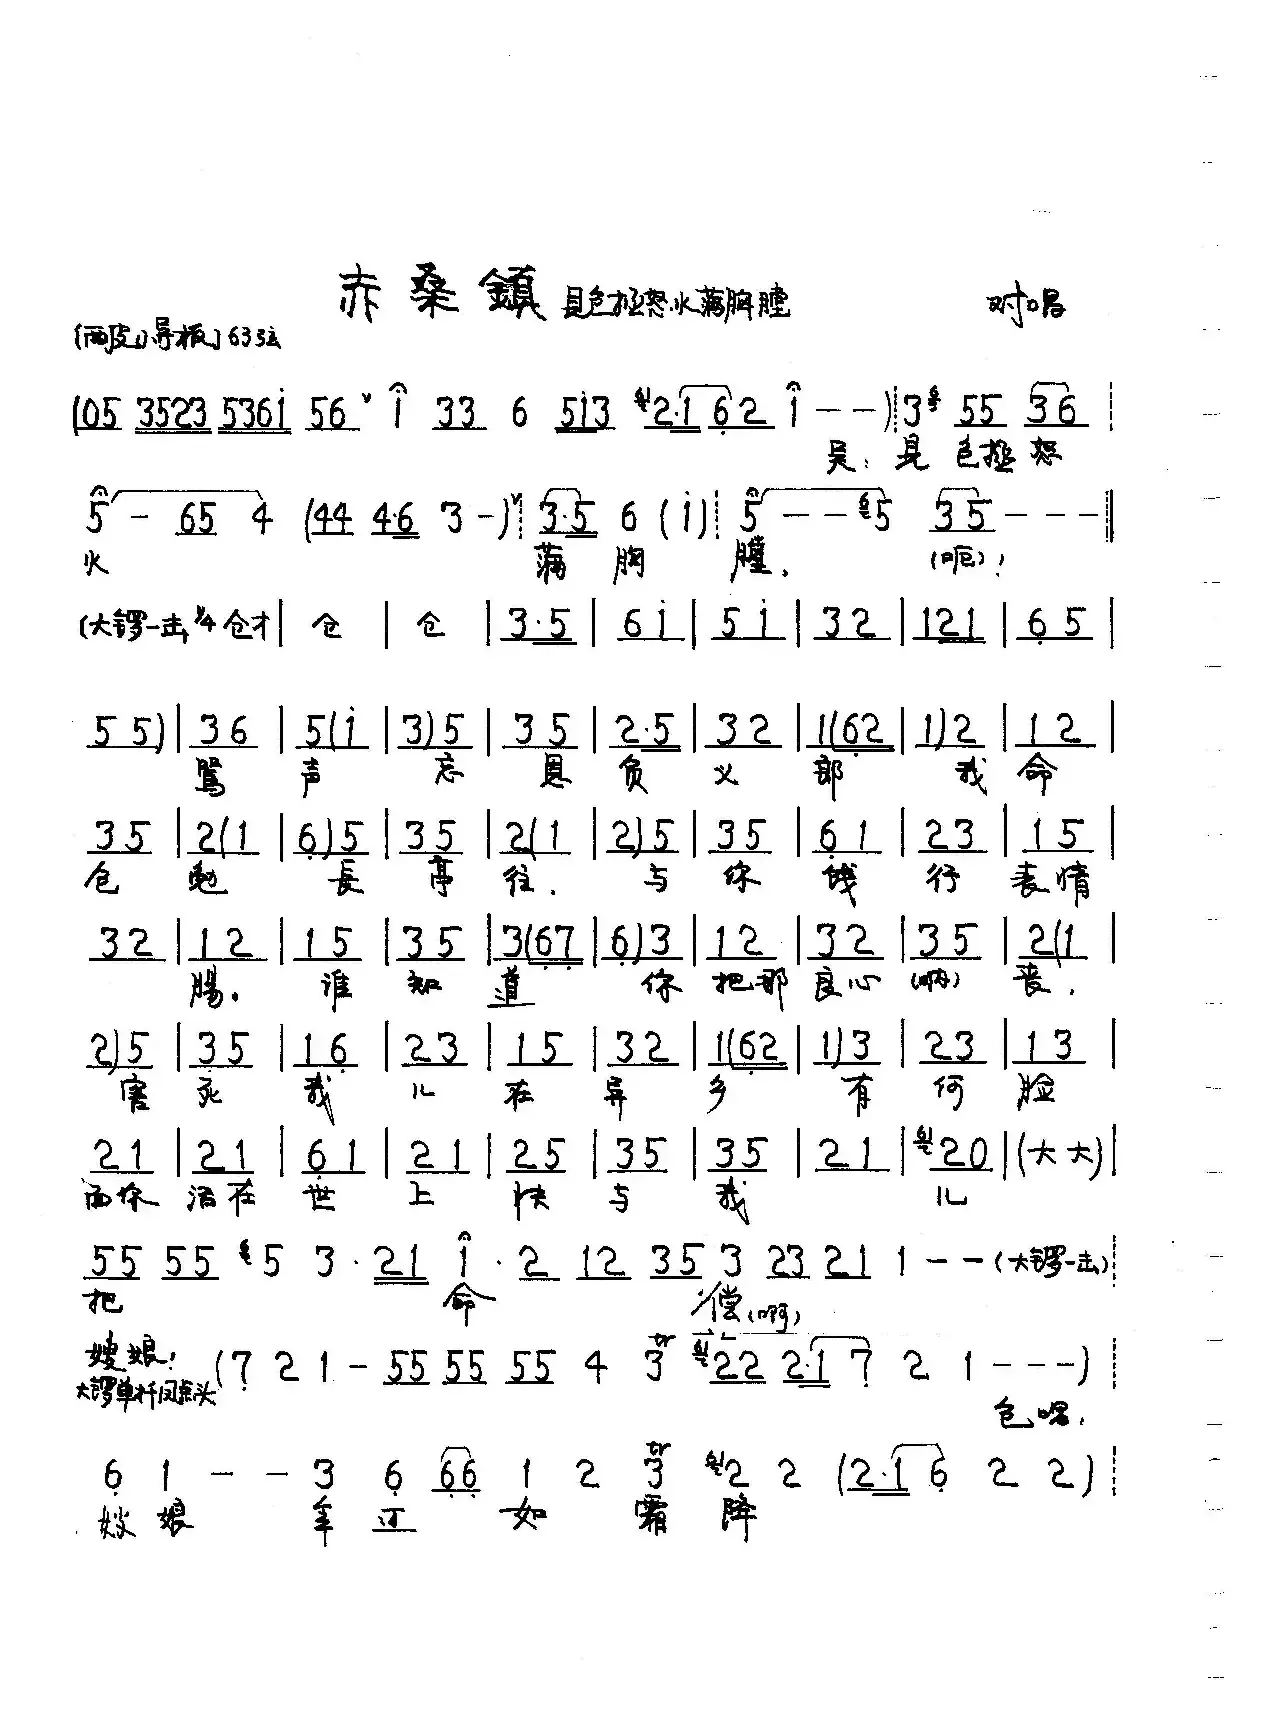 赤桑鎮 見包拯怒火满胸膛 对唱
(西皮)导板」63弦
(05 3523 5361 56 1 33 6 513 2·162 1 - -) 3 55 36
吴: 見包拯怒
5 - 65 4 (44 4·6 3 -) 3·5 6 (1) 5 - - 5 35 - - -
火 满胸膛, (呃)!
(大锣一击 1/4 仓才 | 仓 | 仓 | 3·5 | 61 | 51 | 32 | 121 | 65 |
55) | 36 | 5(1 | 3)5 | 35 | 2·5 | 32 | 1(62 | 1)2 | 12 |
罵声忘恩负义郎我命
35 | 2(1 | 6)5 | 35 | 2(1 | 2)5 | 35 | 61 | 23 | 15 |
包勉長亭往, 与你饯行表情
32 | 12 | 15 | 35 | 3(67 | 6)3 | 12 | 32 | 35 | 2(1 |
腸。谁知道你把那良心(呐)丧,
2)5 | 35 | 16 | 23 | 15 | 32 | 1(62 | 1)3 | 23 | 13 |
害死我儿在异乡有何脸
21 | 21 | 61 | 21 | 25 | 35 | 35 | 21 | 20 | (大大) |
面你活在世上快与我儿
55 55 5 3·21 1·2 12 35 3 23 21 1 - - (大锣一击)
把命偿(啊)
嫂娘! (7 2 1 - 55 55 55 4 3 22 2·17 2 1 - - -)
大锣单杆凤点头
包唱:
6 1 - - 3 6 66 1 2 3 2 2 (2·16 2 2)
嫂娘年迈如霜降